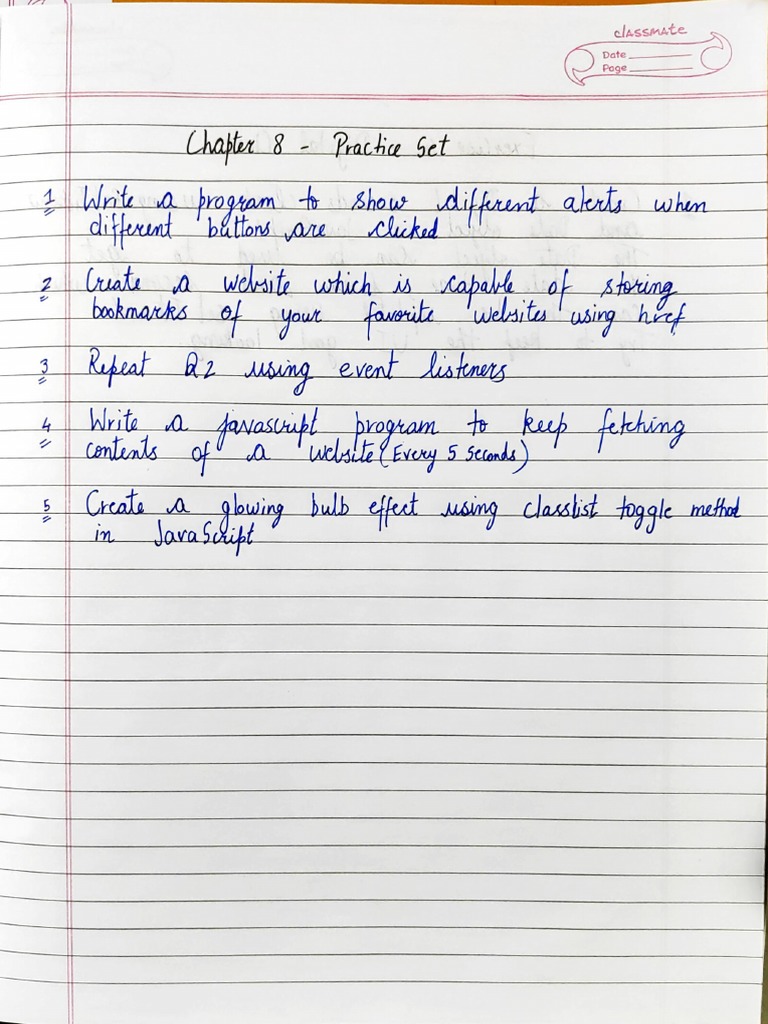 classmate
Date
Page
Chapter 8 - Practice Set
1 Write a program to show different alerts when
different buttons are clicked
2 Create a website which is capable of storing
bookmarks of your favorite websites using href
3 Repeat Q2 using event listeners
4 Write a javascript program to keep fetching
contents of a website (Every 5 Seconds)
5 Create a glowing bulb effect using classlist toggle method
in JavaScript